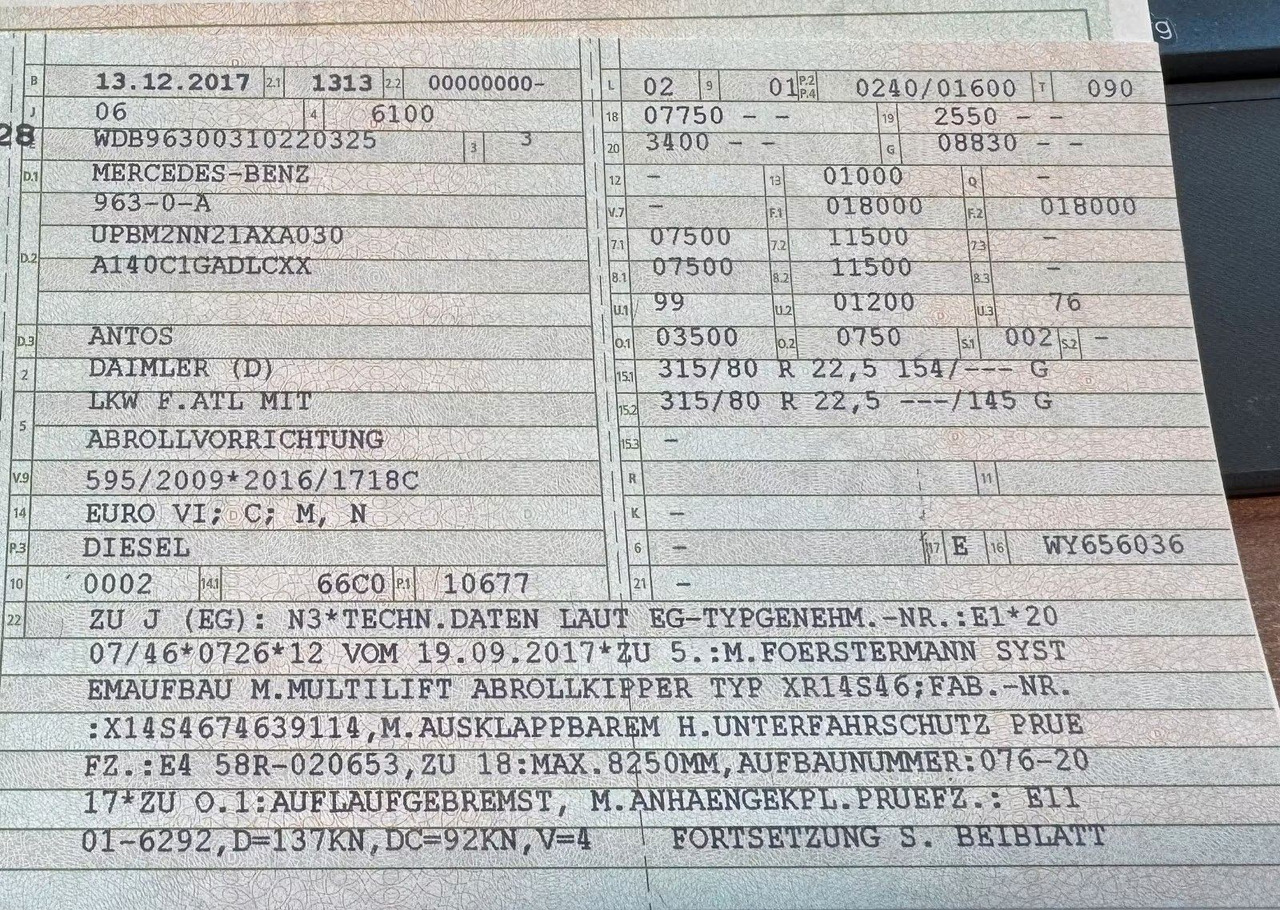 g
B 13.12.2017 2.1 1313 2.2 00000000-
J 06 4 6100
28 E WDB96300310220325 3 3
D.1 MERCEDES-BENZ
963-0-A
D.2 UPBM2NN21AXA030
A140C1GADLCXX
D.3 ANTOS
2 DAIMLER (D)
5 LKW F.ATL MIT
ABROLLVORRICHTUNG
V.9 595/2009*2016/1718C
14 EURO VI; C; M, N
P.3 DIESEL
10 0002 14.1 66C0 P.1 10677
L 02 9 01 P.2 P.4 0240/01600 T 090
18 07750 - - 19 2550 - -
20 3400 - - G 08830 - -
12 - 13 01000 Q -
V.7 - F.1 018000 F.2 018000
7.1 07500 7.2 11500 7.3 -
8.1 07500 8.2 11500 8.3 -
U.1 99 U.2 01200 U.3 76
O.1 03500 O.2 0750 S.1 002 S.2 -
15.1 315/80 R 22,5 154/--- G
15.2 315/80 R 22,5 ---/145 G
15.3 -
R 11
K -
6 - 17 E 16 WY656036
21 -
22 ZU J (EG): N3*TECHN.DATEN LAUT EG-TYPGENEHM.-NR.:E1*20
07/46*0726*12 VOM 19.09.2017*ZU 5.:M.FOERSTERMANN SYST
EMAUFBAU M.MULTILIFT ABROLLKIPPER TYP XR14S46;FAB.-NR.
:X14S4674639114,M.AUSKLAPPBAREM H.UNTERFAHRSCHUTZ PRUE
FZ.:E4 58R-020653,ZU 18:MAX.8250MM,AUFBAUNUMMER:076-20
17*ZU O.1:AUFLAUFGEBREMST, M.ANHAENGEKPL.PRUEFZ.: E11
01-6292,D=137KN,DC=92KN,V=4 FORTSETZUNG S. BEIBLATT